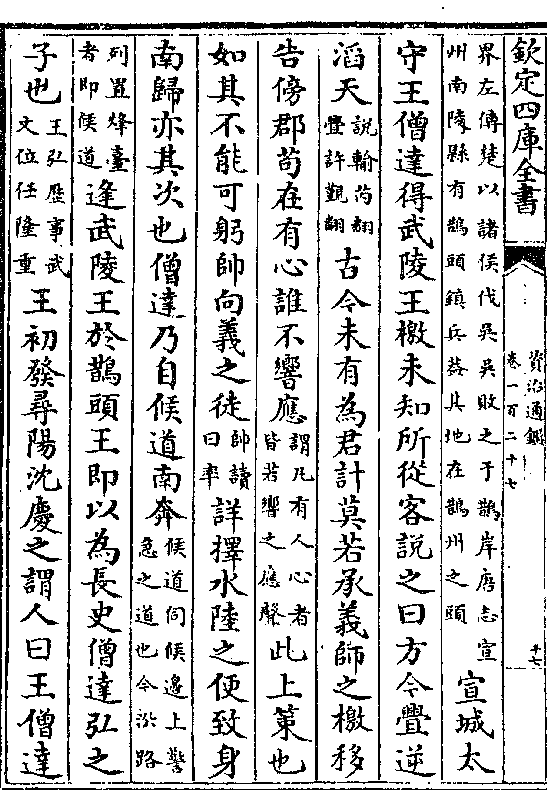 欽定四庫全書
資治通鑑
卷一百二十七
十七
界左傳楚以諸侯伐吳吳敗之于鵲岸唐志宣
州南陵縣有鵲頭鎮兵葢其地在鵲州之頭
宣城太
守王僧達得武陵王檄未知所從客說之曰方今釁逆
滔天
說輸芮翻
釁許覲翻
古今未有為君計莫若承義師之檄移
告傍郡苟在有心誰不響應
謂凡有人心者
皆若響之應聲
此上策也
如其不能可躬帥向義之徒
帥讀
曰率
詳擇水陸之便致身
南歸亦其次也僧達乃自候道南奔
候道伺候邊上警
急之道也今沿路
列置烽臺
者即候道
逢武陵王於鵲頭王即以為長史僧達弘之
子也
王弘歷事武
文位任隆重
王初發尋陽沈慶之謂人曰王僧達